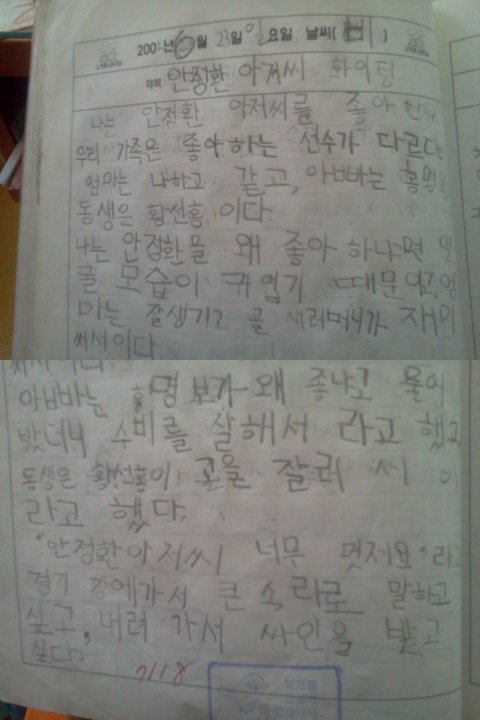 200 년 6월 23일 일요일 날씨( 비 )
제목: 안정환 아저씨 화이팅
나는 안정환 아저씨를 좋아 한다
우리 가족은 좋아하는 선수가 다르다.
엄마는 나하고 같고, 아빠는 홍명
동생은 황선홍 이다.
나는 안정환을 왜 좋아 하냐면 얼
굴 모습이 귀엽기 때문이고, 엄
마는 잘생기고 골 세러머니가 재미
써서이다.
아빠는 홍명보가 왜 좋냐고 물어
밨너니 수비를 잘해서 라고 했고
동생은 황선홍이 골을 잘
라고 했다.
"안정환아저씨 너무 멋져요"라고
경기 장에가서 큰 소리로 말하고
싶고, 내려 가서 싸인을 받고
싶다.